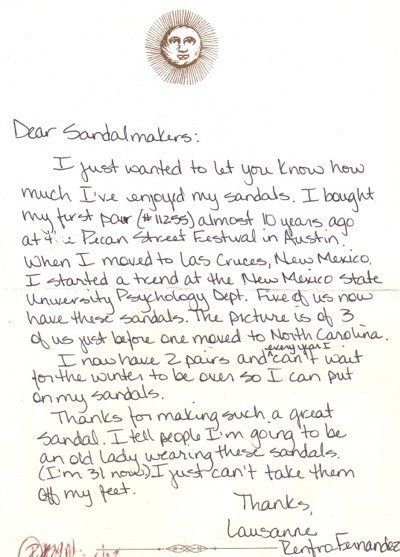 Dear Sandalmakers:
I just wanted to let you know how
much I've enjoyd my sandals. I bought
my first pair (#11255) almost 10 years ago
at the Pecan Street Festival in Austin.
When I moved to Las Cruces, New Mexico,
I started a trend at the New Mexico State
University Psychology Dept. Five of us now
have these sandals. The picture is of 3
of us just before one moved to North Carolina.
I now have 2 pairs and every year I can't wait
for the winter to be over so I can put
on my sandals.
Thanks for making such a great
sandal. I tell people I'm going to be
an old lady wearing these sandals.
(I'm 31 now.) I just can't take them
off my feet.
Thanks,
Lausanne
Renfro Fernandez